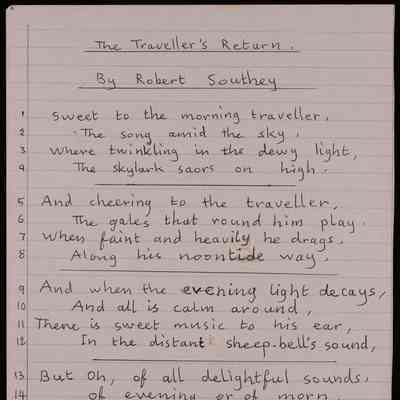 The Traveller's Return.
By Robert Southey
1 Sweet to the morning traveller,
2 The song amid the sky,
3 Where twinkling in the dewy light,
4 The skylark saors on high.
5 And cheering to the traveller,
6 The gales that round him play.
7 When faint and heavily he drags,
8 Along his noontide way,
9 And when the evening light decays,
10 And all is calm around,
11 There is sweet music to his ear,
12 In the distant sheep-bell's sound,
13 But Oh, of all delightful sounds,
14 of evening or of morn